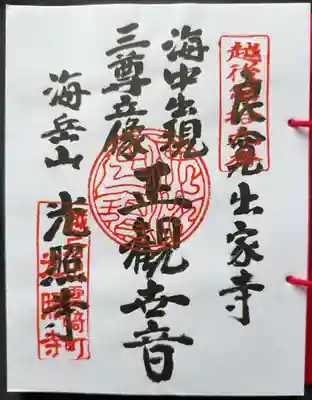 越後
良寛出家寺
海中出現
三尊立像
正観世音
海岳山
光照寺
雲崎町
光照寺